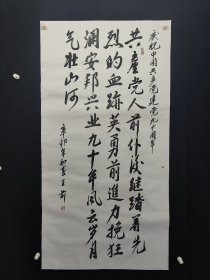 庆祝中国共产党建党九十周年
共产党人前仆后继踏着先
烈的血跡英勇前進力挽狂
澜安邦兴业九十年风云岁月
气壮山河
辛卯年初夏王前